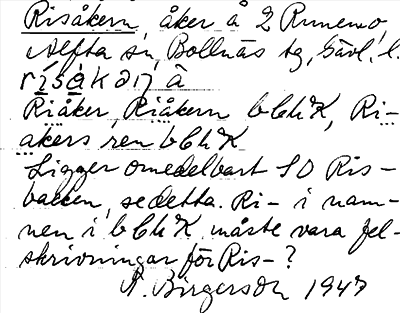 Risåkern, åker å 2 Runemo,
Alfta sn, Bollnäs tg, Gävl. l.
rísàkəɳ â
Riåker, Riåkern bChK, Ri-
åkers ren bChK
Ligger omedelbart SO Ris-
backen, se detta. Ri- i nam-
nen i bChK måste vara fel-
skrivningar för Ris-?
A. Birgerson 1947